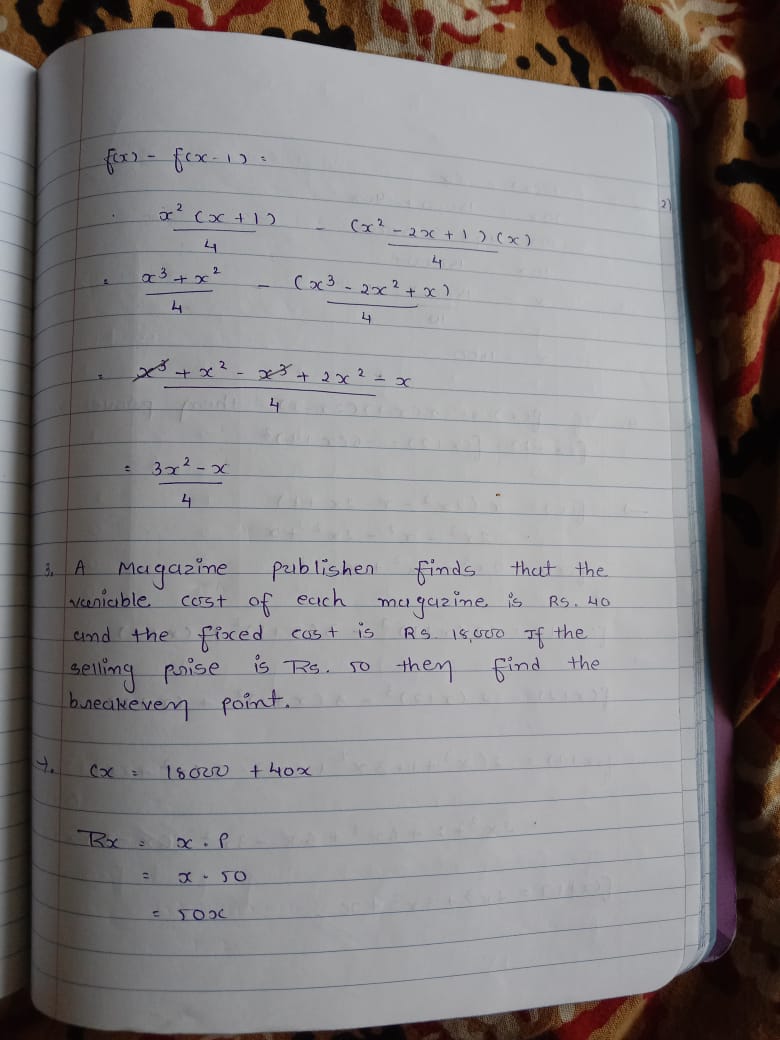 f(x) - f(x-1) =
x² (x+1) / 4 - (x² - 2x + 1) (x) / 4
= x³ + x² / 4 - (x³ - 2x² + x) / 4
= x³ + x² - x³ + 2x² - x / 4
= 3x² - x / 4
3. A Magazine publisher finds that the
variable cost of each magazine is RS. 40
and the fixed cost is RS. 18,000 If the
selling prise is Rs. 50 then find the
breakeven point.
→. Cx = 18000 + 40x
Rx = x . P
= x . 50
= 50x
2)